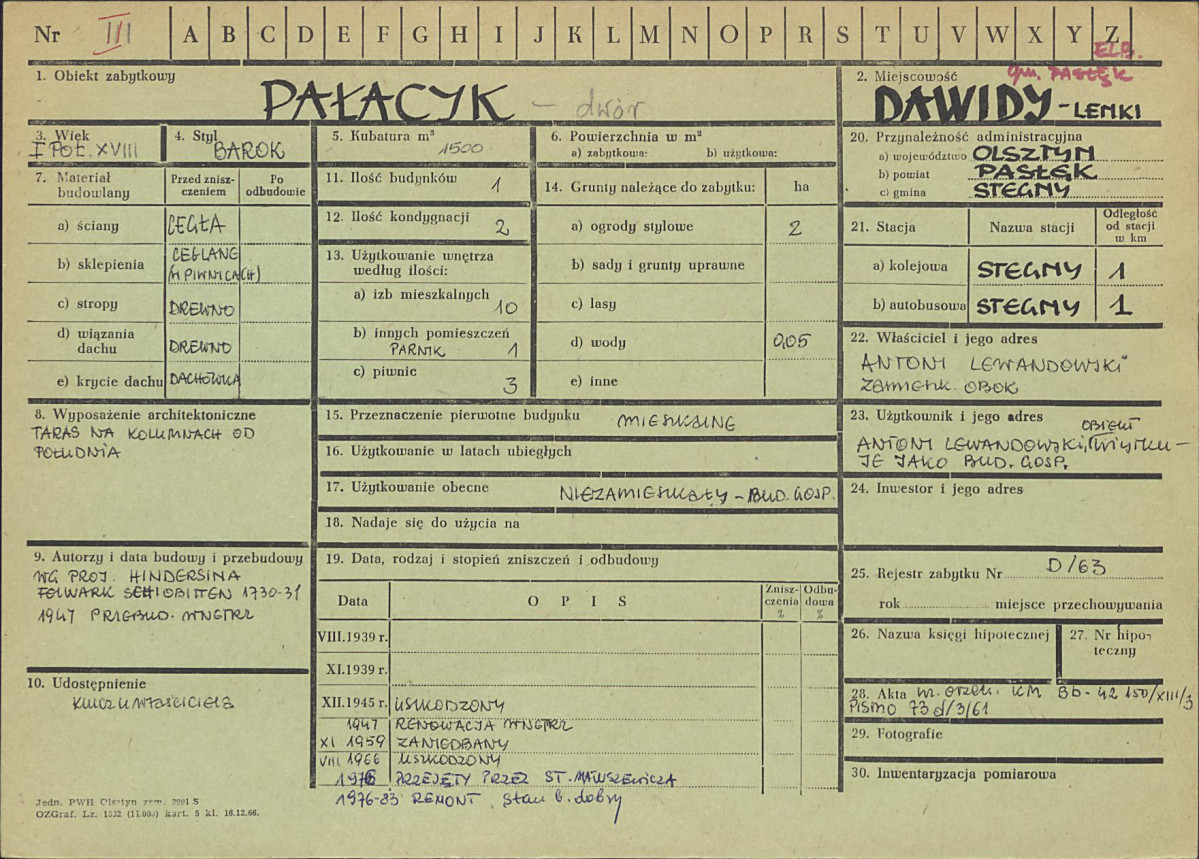 Nr III A B C D E F G H I J K L M N O P R S T U V W X Y Z
ELB.
gm. PASŁĘK
1. Obiekt zabytkowy
PAŁACYK – dwór
2. Miejscowość
DAWIDY – LEMKI
3. Wiek
I POŁ. XVIII
4. Styl
BAROK
5. Kubatura m³
1500
6. Powierzchnia w m²
a) zabytkowa: b) użytkowa:
7. Materiał budowlany
Przed zniszczeniem
Po odbudowie
a) ściany CEGŁA
b) sklepienia CEGLANE (W PIWNICACH)
c) stropy DREWNO
d) wiązania dachu DREWNO
e) krycie dachu DACHÓWKA
8. Wyposażenie architektoniczne
TARAS NA KOLUMNACH OD
POŁUDNIA
9. Autorzy i data budowy i przebudowy
WG PROJ. HINDERSINA
FOLWARK SCHLOBITTEN 1730-31
1947 PRZEBUD. WNĘTRZ
10. Udostępnienie
KLUCZ U WŁAŚCICIELA
11. Ilość budynków 1
12. Ilość kondygnacji 2
13. Użytkowanie wnętrza według ilości:
a) izb mieszkalnych 10
b) innych pomieszczeń
PARNIK 1
c) piwnic 3
14. Grunty należące do zabytku: ha
a) ogrody stylowe 2
b) sady i grunty uprawne
c) lasy
d) wody 0,05
e) inne
15. Przeznaczenie pierwotne budynku MIESZKALNE
16. Użytkowanie w latach ubiegłych
17. Użytkowanie obecne NIEZAMIESZKAŁY – BUD. GOSP.
18. Nadaje się do użycia na
19. Data, rodzaj i stopień zniszczeń i odbudowy
Data O P I S Zniszczenia % Odbudowa %
VIII.1939 r.
XI.1939 r.
XII.1945 r. USZKODZONY
1947 RENOWACJA WNĘTRZ
XI 1959 ZANIEDBANY
VIII 1966 USZKODZONY
1976 PRZEJĘTY PRZEZ ST.
1976-83 REMONT, Stan b. dobry
20. Przynależność administracyjna
a) województwo OLSZTYN
b) powiat PASŁĘK
c) gmina STEGNY
21. Stacja Nazwa stacji Odległość od stacji w km
a) kolejowa STEGNY 1
b) autobusowa STEGNY 1
22. Właściciel i jego adres
ANTONI LEWANDOWSKI
ZAMIESZK. OBOK
23. Użytkownik i jego adres
OBIEKT
ANTONI LEWANDOWSKI,
JE JAKO BUD. GOSP.
24. Inwestor i jego adres
25. Rejestr zabytku Nr D/63
rok miejsce przechowywania
26. Nazwa księgi hipotecznej
27. Nr hipoteczny
28. Akta nr. orzecz. KM Bb-42 150/XIII/3
PISMO 73 d/3/61
29. Fotografie
30. Inwentaryzacja pomiarowa
Jedn. PWH Olsztyn zam. 2991 S
OZGraf. Lz. 1332 (11.000) kart. 5 kl. 16.12.66.